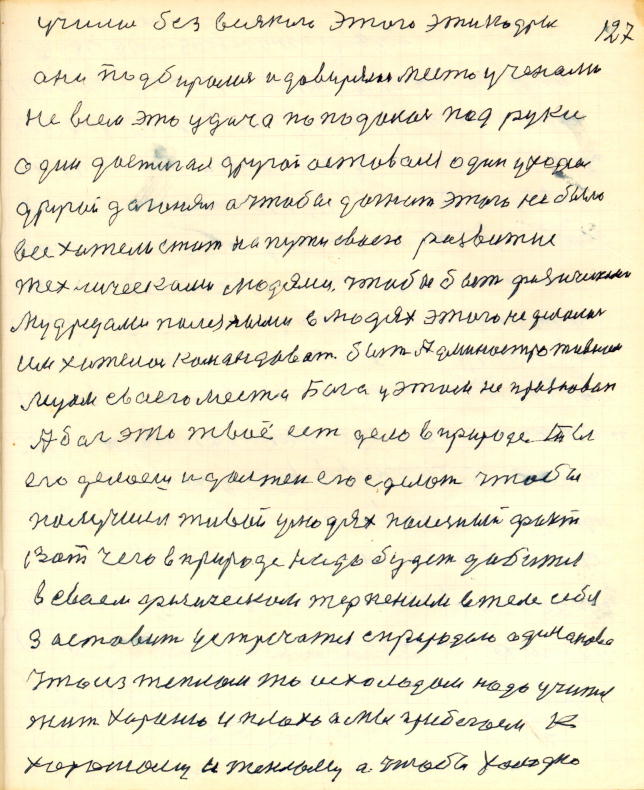 127
учили без всякого этого этинодре
они подбирался и доверяли место ученами
не всем это удача поподокая под руки
один достигал другой оставался один уходил
другой догонял а чтобы догнат этого не было
все хотели стат на пути своего развитие
техническими людями, чтобы быт физическими
мудрецами полезными в людях этого не делали
им хотелос командоват. быт Административном
лицом своего места Бога у этом не признават
А бог это твоё ест дело в природе Ты
его делаеш и должен его сделат чтобы
получился живой у людях полезный факт
Вот чего в природе надо будет добится
в своем физическом терпением в теле себя
заставит устречатся с природою одинаково
Что из теплом то и с холодом надо учится
жит хорошо и плохо а мы прибегаем к
хорошому и теплому а чтобы холодно